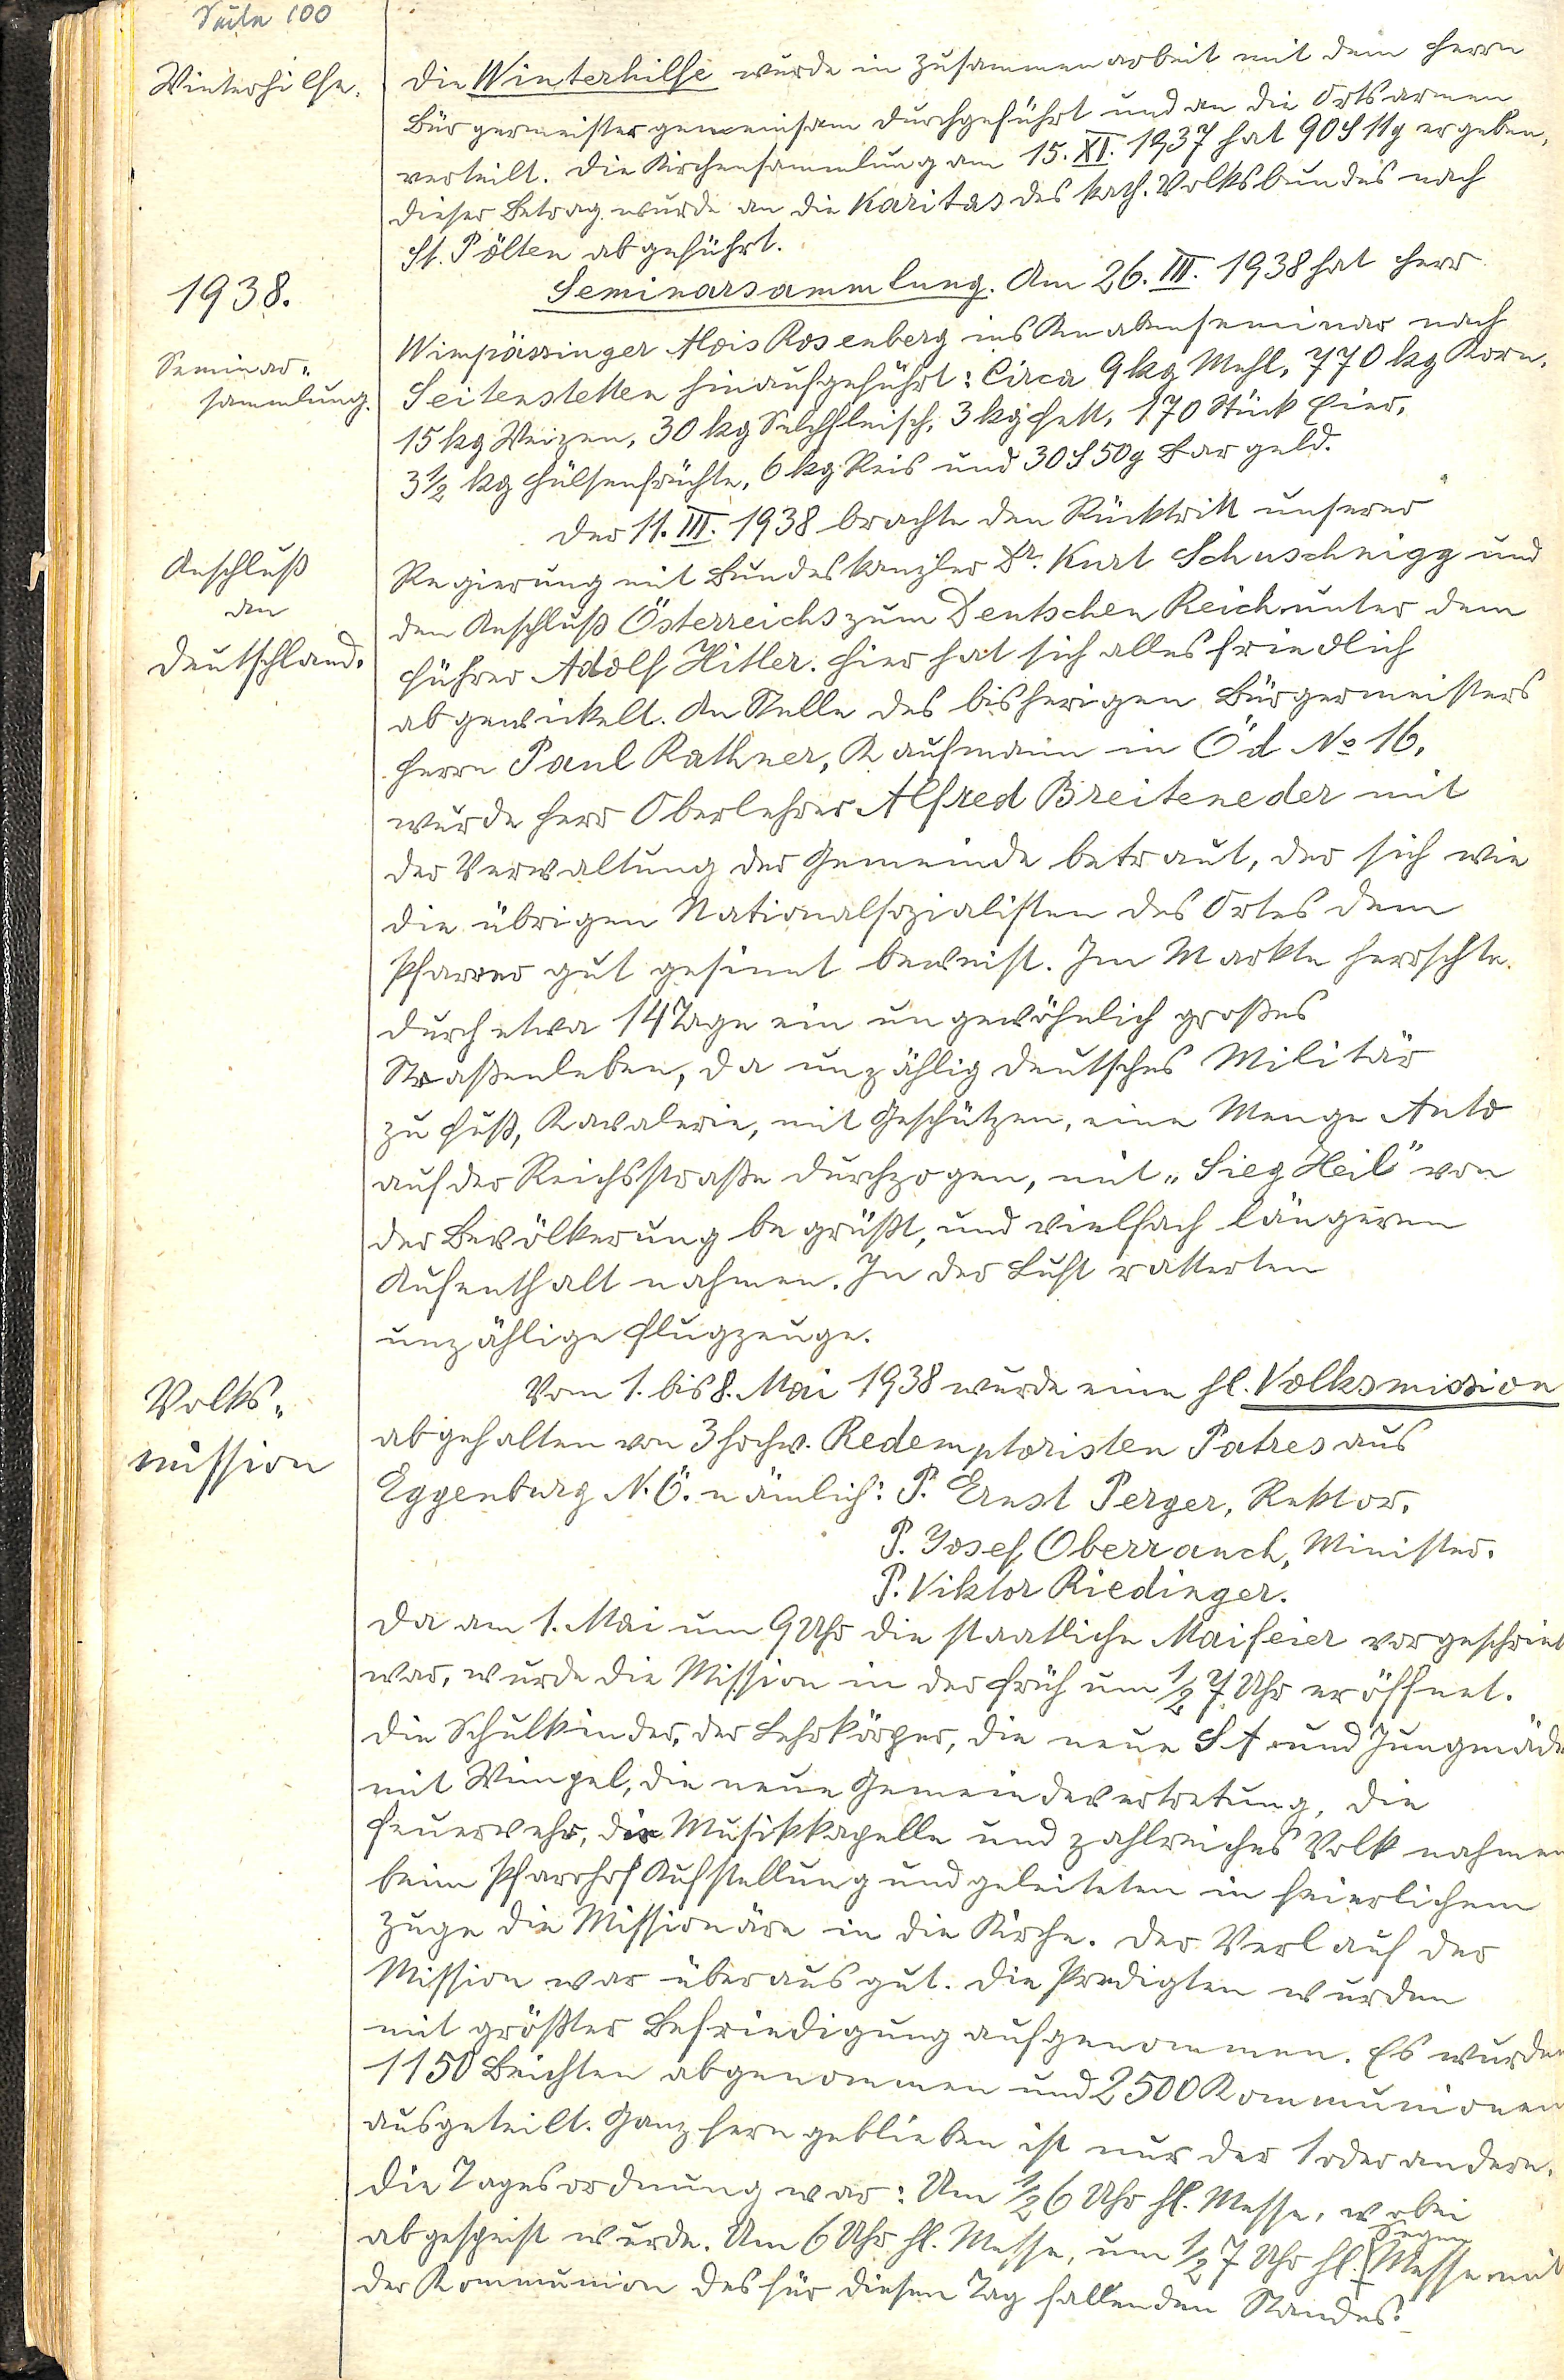 Seite 100
Winterhilfe.
Die Winterhilfe wurde in Zusammenarbeit mit dem Herrn
Bürgermeister gemeinsam durchgeführt und an die Ortsarmen
verteilt. Die Kirchensammlung am 15. XI. 1937 hat 90 S 11 g ergeben,
dieser Betrag wurde an die Karitas des kath. Volksbundes nach
St. Pölten abgeführt.
1938.
Seminar=
sammlung.
Seminarsammlung. Am 26. III. 1938 hat Herr
Wimpässinger Alois Rosenberg ins Knabenseminar nach
Seitenstetten hinaufgeführt: Circa 9 kg Mehl, 770 kg Korn,
15 kg Weizen, 30 kg Selchfleisch, 3 kg Fett, 170 Stück Eier,
3 1/2 kg Hülsenfrüchte, 6 kg Reis und 30 S 50 g Bargeld.
Anschluß
an
Deutschland.
Der 11. III. 1938 brachte den Rücktritt unserer
Regierung mit Bundeskanzler Dr. Kurt Schuschnigg und
den Anschluß Österreichs zum Deutschen Reich unter dem
Führer Adolf Hitler. Hier hat sich alles friedlich
abgewickelt. An Stelle des bisherigen Bürgermeisters
Herrn Paul Rathner, Kaufmann in Öd No 16,
wurde Herr Oberlehrer Alfred Breiteneder mit
der Verwaltung der Gemeinde betraut, der sich wie
die übrigen Nationalsozialisten des Ortes dem
Pfarrer gut gesinnt beweist. Im Markte herrschte
durch etwa 14 Tage ein ungewöhnlich großes
Straßenleben, da unzählig deutsches Militär
zu Fuß, Kavalerie, mit Geschützen, eine Menge Auto
auf der Reichsstraße durchzogen, mit „Sieg Heil" von
der Bevölkerung begrüßt, und vielfach längeren
Aufenthalt nahmen. In der Luft ratterten
unzählige Flugzeuge.
Volks=
mission
Vom 1. bis 8. Mai 1938 wurde eine hl. Volksmission
abgehalten von 3 hochw. Redemptoristen Patres aus
Eggenburg N.Ö. nämlich: P. Ernst Perger, Rektor.
P. Josef Oberrauch, Minister.
P. Viktor Riedinger.
Da am 1. Mai um 9 Uhr die staatliche Maifeier vorgeschrieb
war, wurde die Mission in der Früh um 1/2 7 Uhr eröffnet.
Die Schulkinder, der Lehrkörper, die neue SA und Jungmäde
mit Wimpel, die neue Gemeindevertretung, die
Feuerwehr, die Musikkapelle und zahlreiches Volk nahmen
beim Pfarrhof Aufstellung und geleiteten in feierlichem
Zuge die Missionäre in die Kirche. Der Verlauf der
Mission war überaus gut. Die Predigten wurden
mit größter Befriedigung aufgenommen. Es wurden
1150 Beichten abgenommen und 2500 Kommunionen
ausgeteilt. Ganz fern geblieben ist nur der 1 oder andere.
Die Tagesordnung war: Um 1/2 6 Uhr hl. Messe, wobei
abgespeist wurde. Um 6 Uhr hl. Messe, um 1/2 7 Uhr hl. Segen Messe mit
der Kommunion des für diesen Tag fallenden Standes.